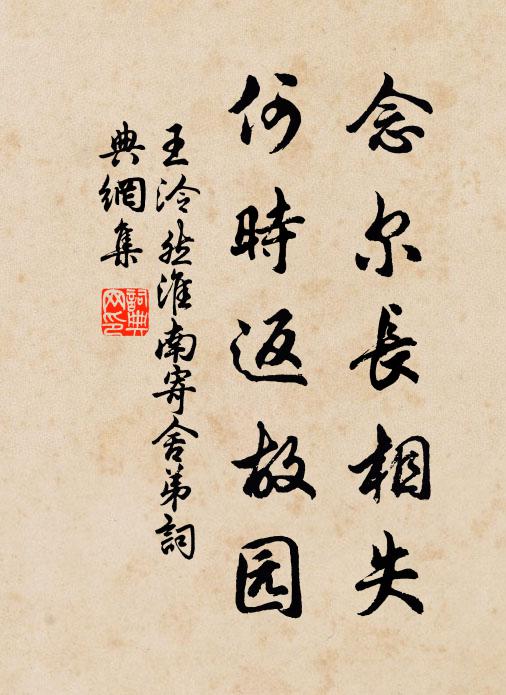 念尔長相失
何時返故园
王泠然淮南寄舍弟詞
典網集
詞典网印